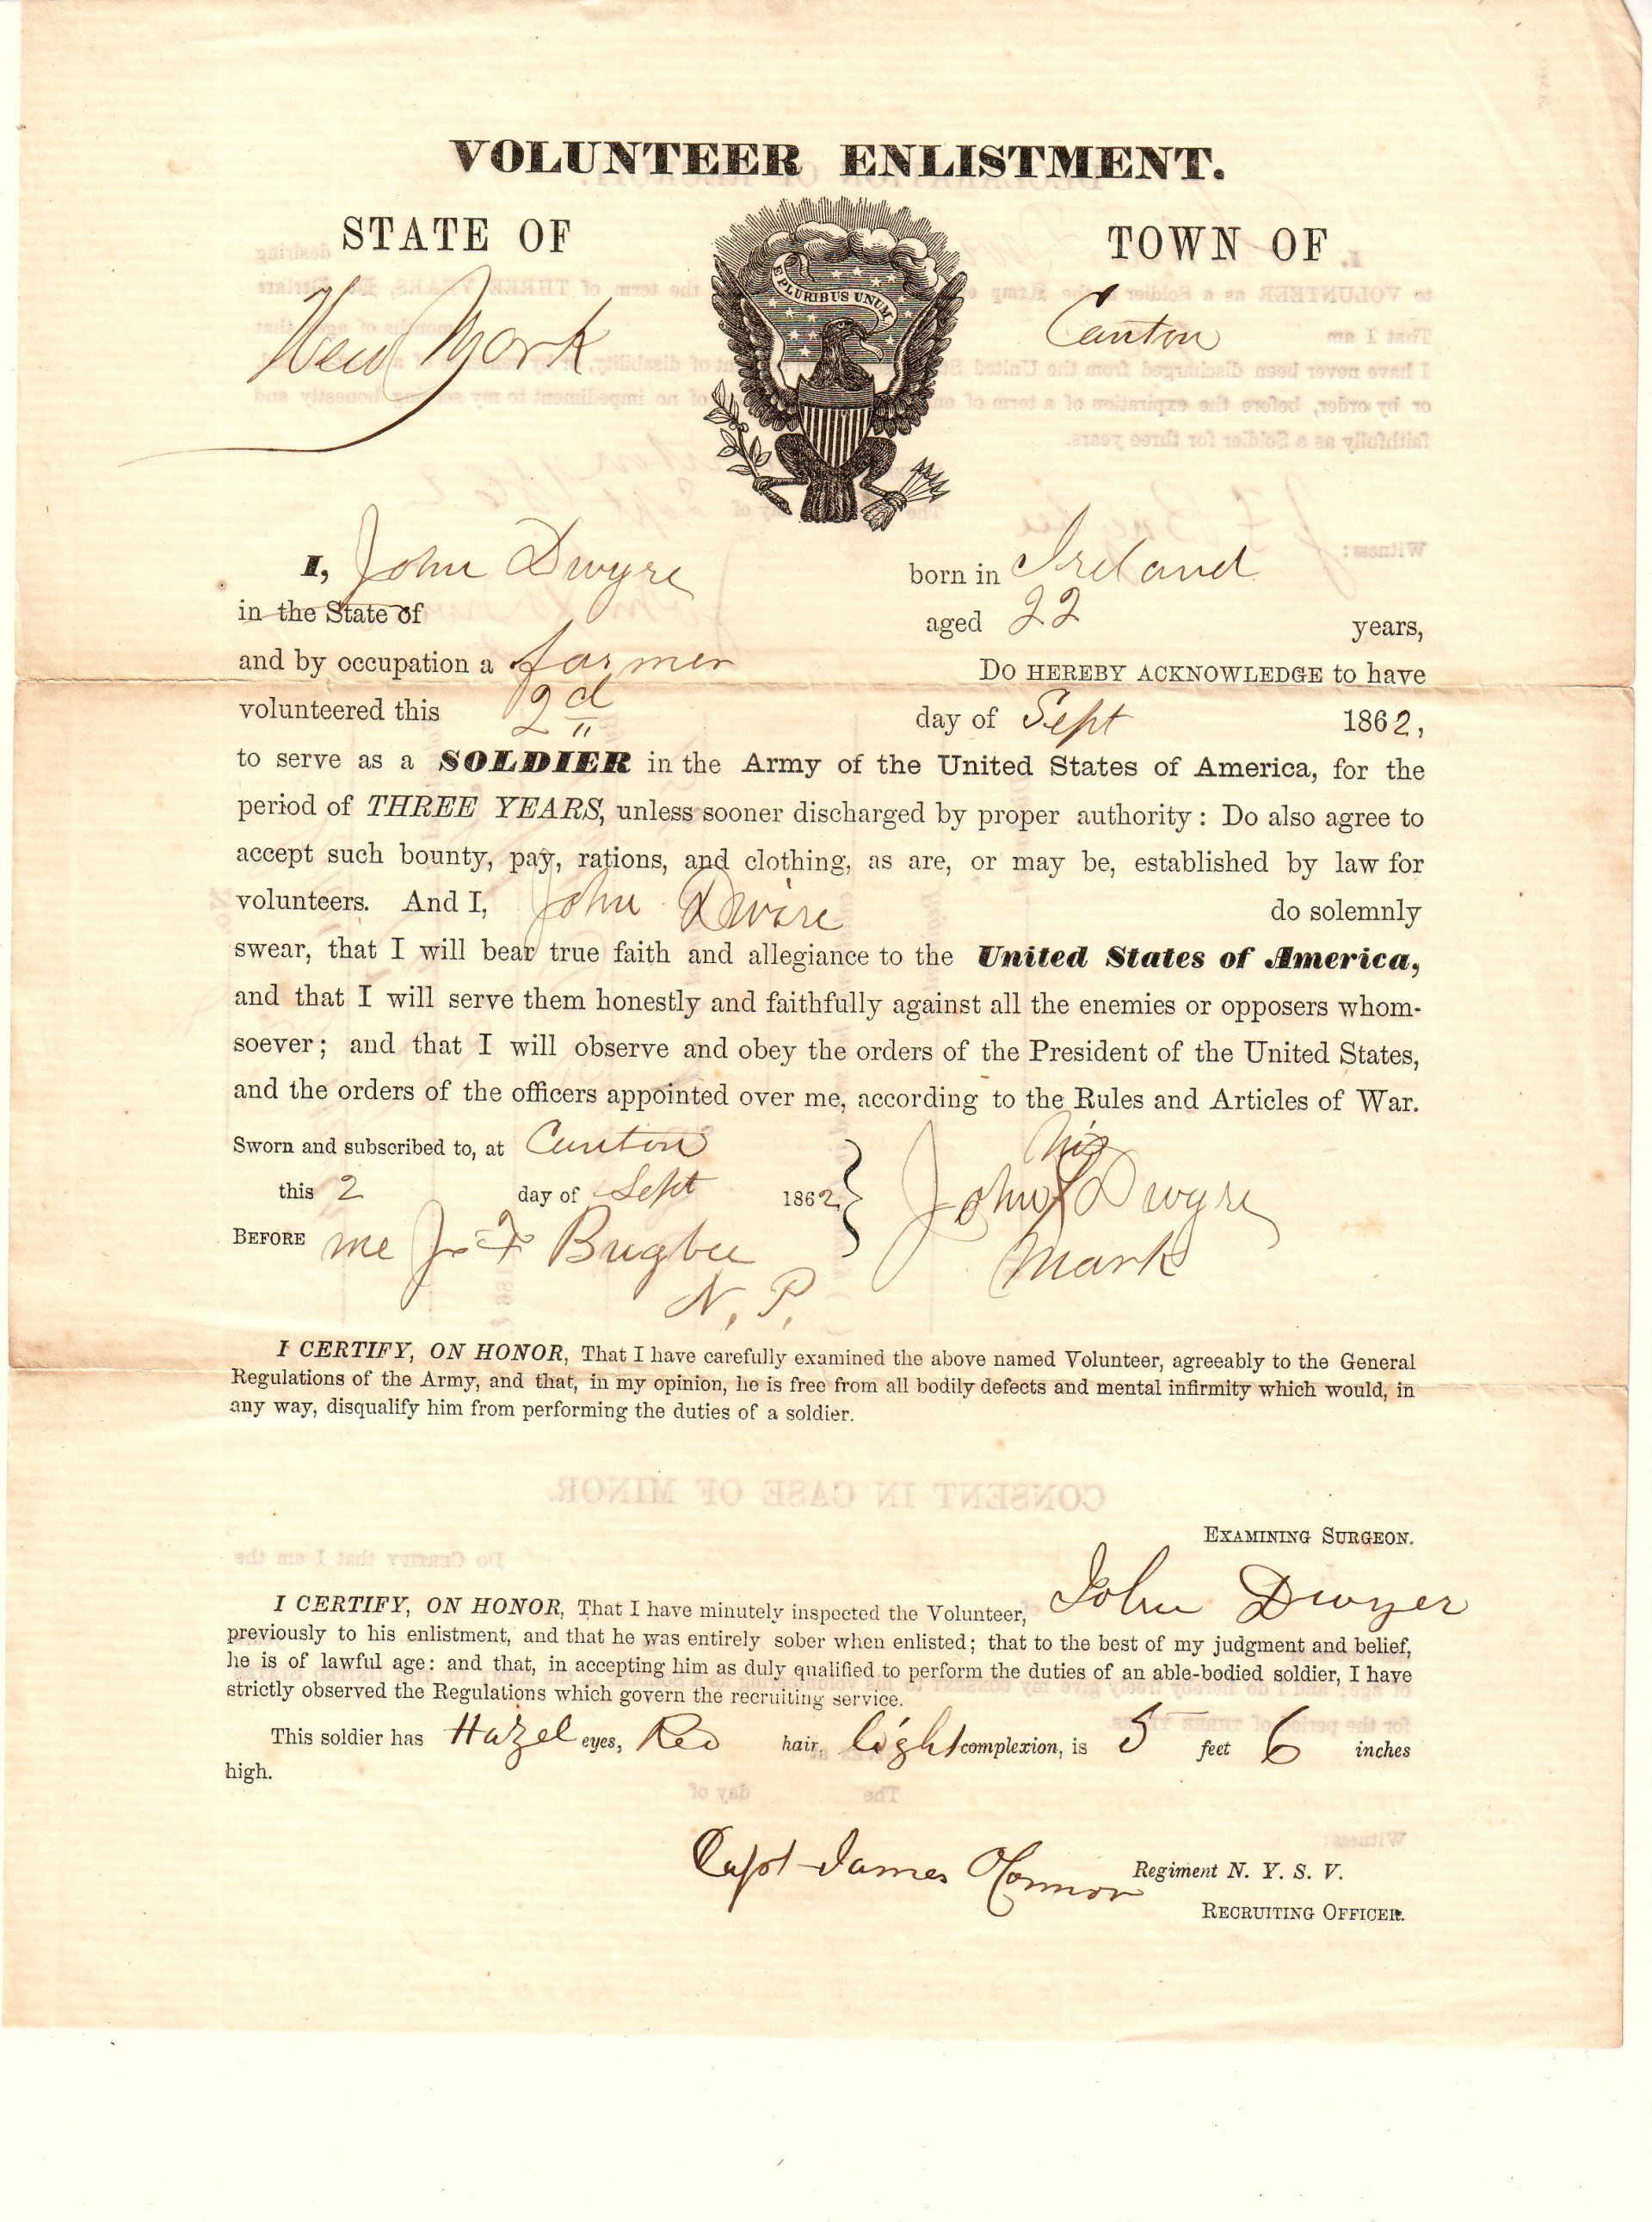 VOLUNTEER ENLISTMENT.
STATE OF
New York
TOWN OF
Canton
E PLURIBUS UNUM
I, John Dwyre born in Ireland
in the State of aged 22 years,
and by occupation a farmer Do HEREBY ACKNOWLEDGE to have
volunteered this 2d day of Sept 1862,
to serve as a SOLDIER in the Army of the United States of America, for the
period of THREE YEARS, unless sooner discharged by proper authority: Do also agree to
accept such bounty, pay, rations, and clothing, as are, or may be, established by law for
volunteers. And I, John Dwire do solemnly
swear, that I will bear true faith and allegiance to the United States of America,
and that I will serve them honestly and faithfully against all the enemies or opposers whom-
soever; and that I will observe and obey the orders of the President of the United States,
and the orders of the officers appointed over me, according to the Rules and Articles of War.
Sworn and subscribed to, at Canton
this 2 day of Sept 1862
BEFORE me J. F Bugbee
N. P.
his
John X Dwyre
Mark
I CERTIFY, ON HONOR, That I have carefully examined the above named Volunteer, agreeably to the General
Regulations of the Army, and that, in my opinion, he is free from all bodily defects and mental infirmity which would, in
any way, disqualify him from performing the duties of a soldier.
EXAMINING SURGEON.
I CERTIFY, ON HONOR, That I have minutely inspected the Volunteer, John Dwyer
previously to his enlistment, and that he was entirely sober when enlisted; that to the best of my judgment and belief,
he is of lawful age: and that, in accepting him as duly qualified to perform the duties of an able-bodied soldier, I have
strictly observed the Regulations which govern the recruiting service.
This soldier has Hazel eyes, Red hair, light complexion, is 5 feet 6 inches
high.
Capt James OConnor Regiment N. Y. S. V.
RECRUITING OFFICER.